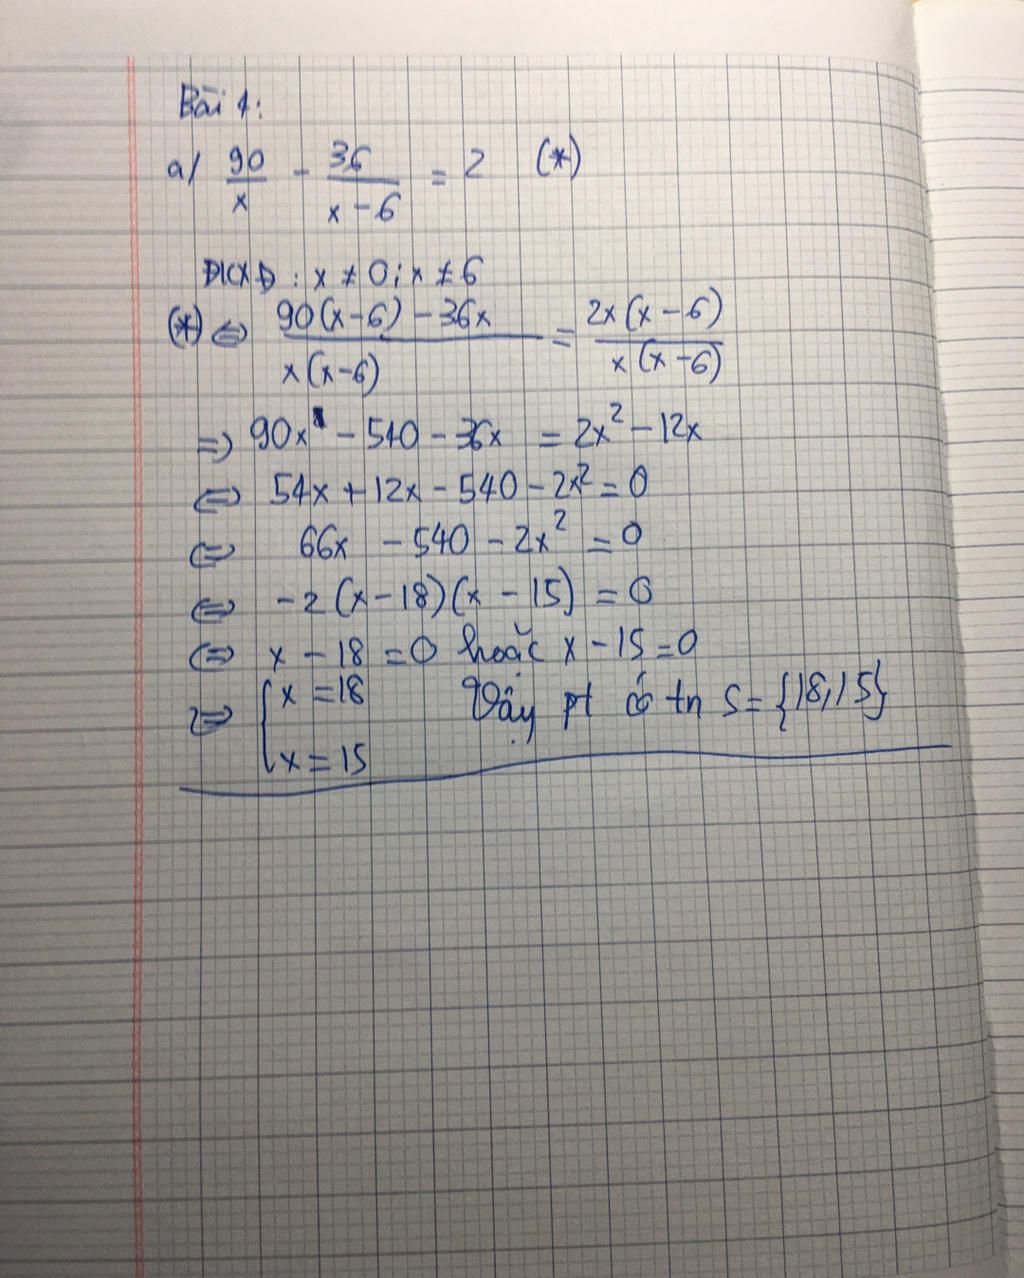 Bài 1:
a/ 90/x - 36/(x-6) = 2 (*)
ĐKXĐ: x ≠ 0; x ≠ 6
(*) ⇔ (90(x-6) - 36x)/(x(x-6)) = (2x(x-6))/(x(x-6))
⇒ 90x - 540 - 36x = 2x² - 12x
⇔ 54x + 12x - 540 - 2x² = 0
⇔ 66x - 540 - 2x² = 0
⇔ -2(x-18)(x-15) = 0
⇔ x - 18 = 0 hoặc x - 15 = 0
⇔ { x = 18
x = 15
Vậy pt có tn S = {18, 15}